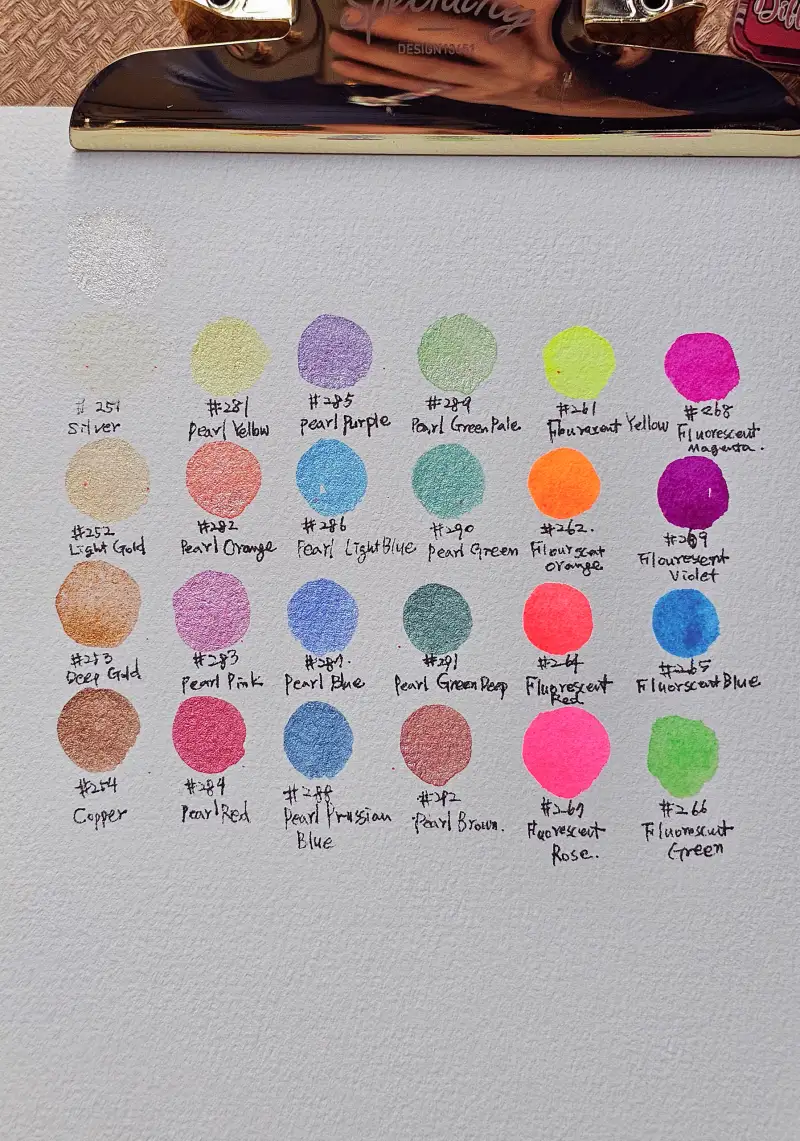 DESIGN
#251
Silver
#281
Pearl Yellow
#285
Pearl Purple
#289
Pearl Green Pale
#261
Flourescent Yellow
#268
Fluorescent
Magenta.
#252
Light Gold
#282
Pearl Orange
#286
Pearl Light Blue
#290
Pearl Green
#262.
Flourscat
Orange
#269
Flourescent
Violet
#253
Deep Gold
#283
Pearl Pink
#287.
Pearl Blue
#291
Pearl Green Deep
#264
Fluorescent
Red
#265
FluorscentBlue
#254
Copper
#284
Pearl Red
#288
Pearl Prussian
Blue
#292
Pearl Brown.
#267
Fluorescent
Rose.
#266
Fluorescent
Green